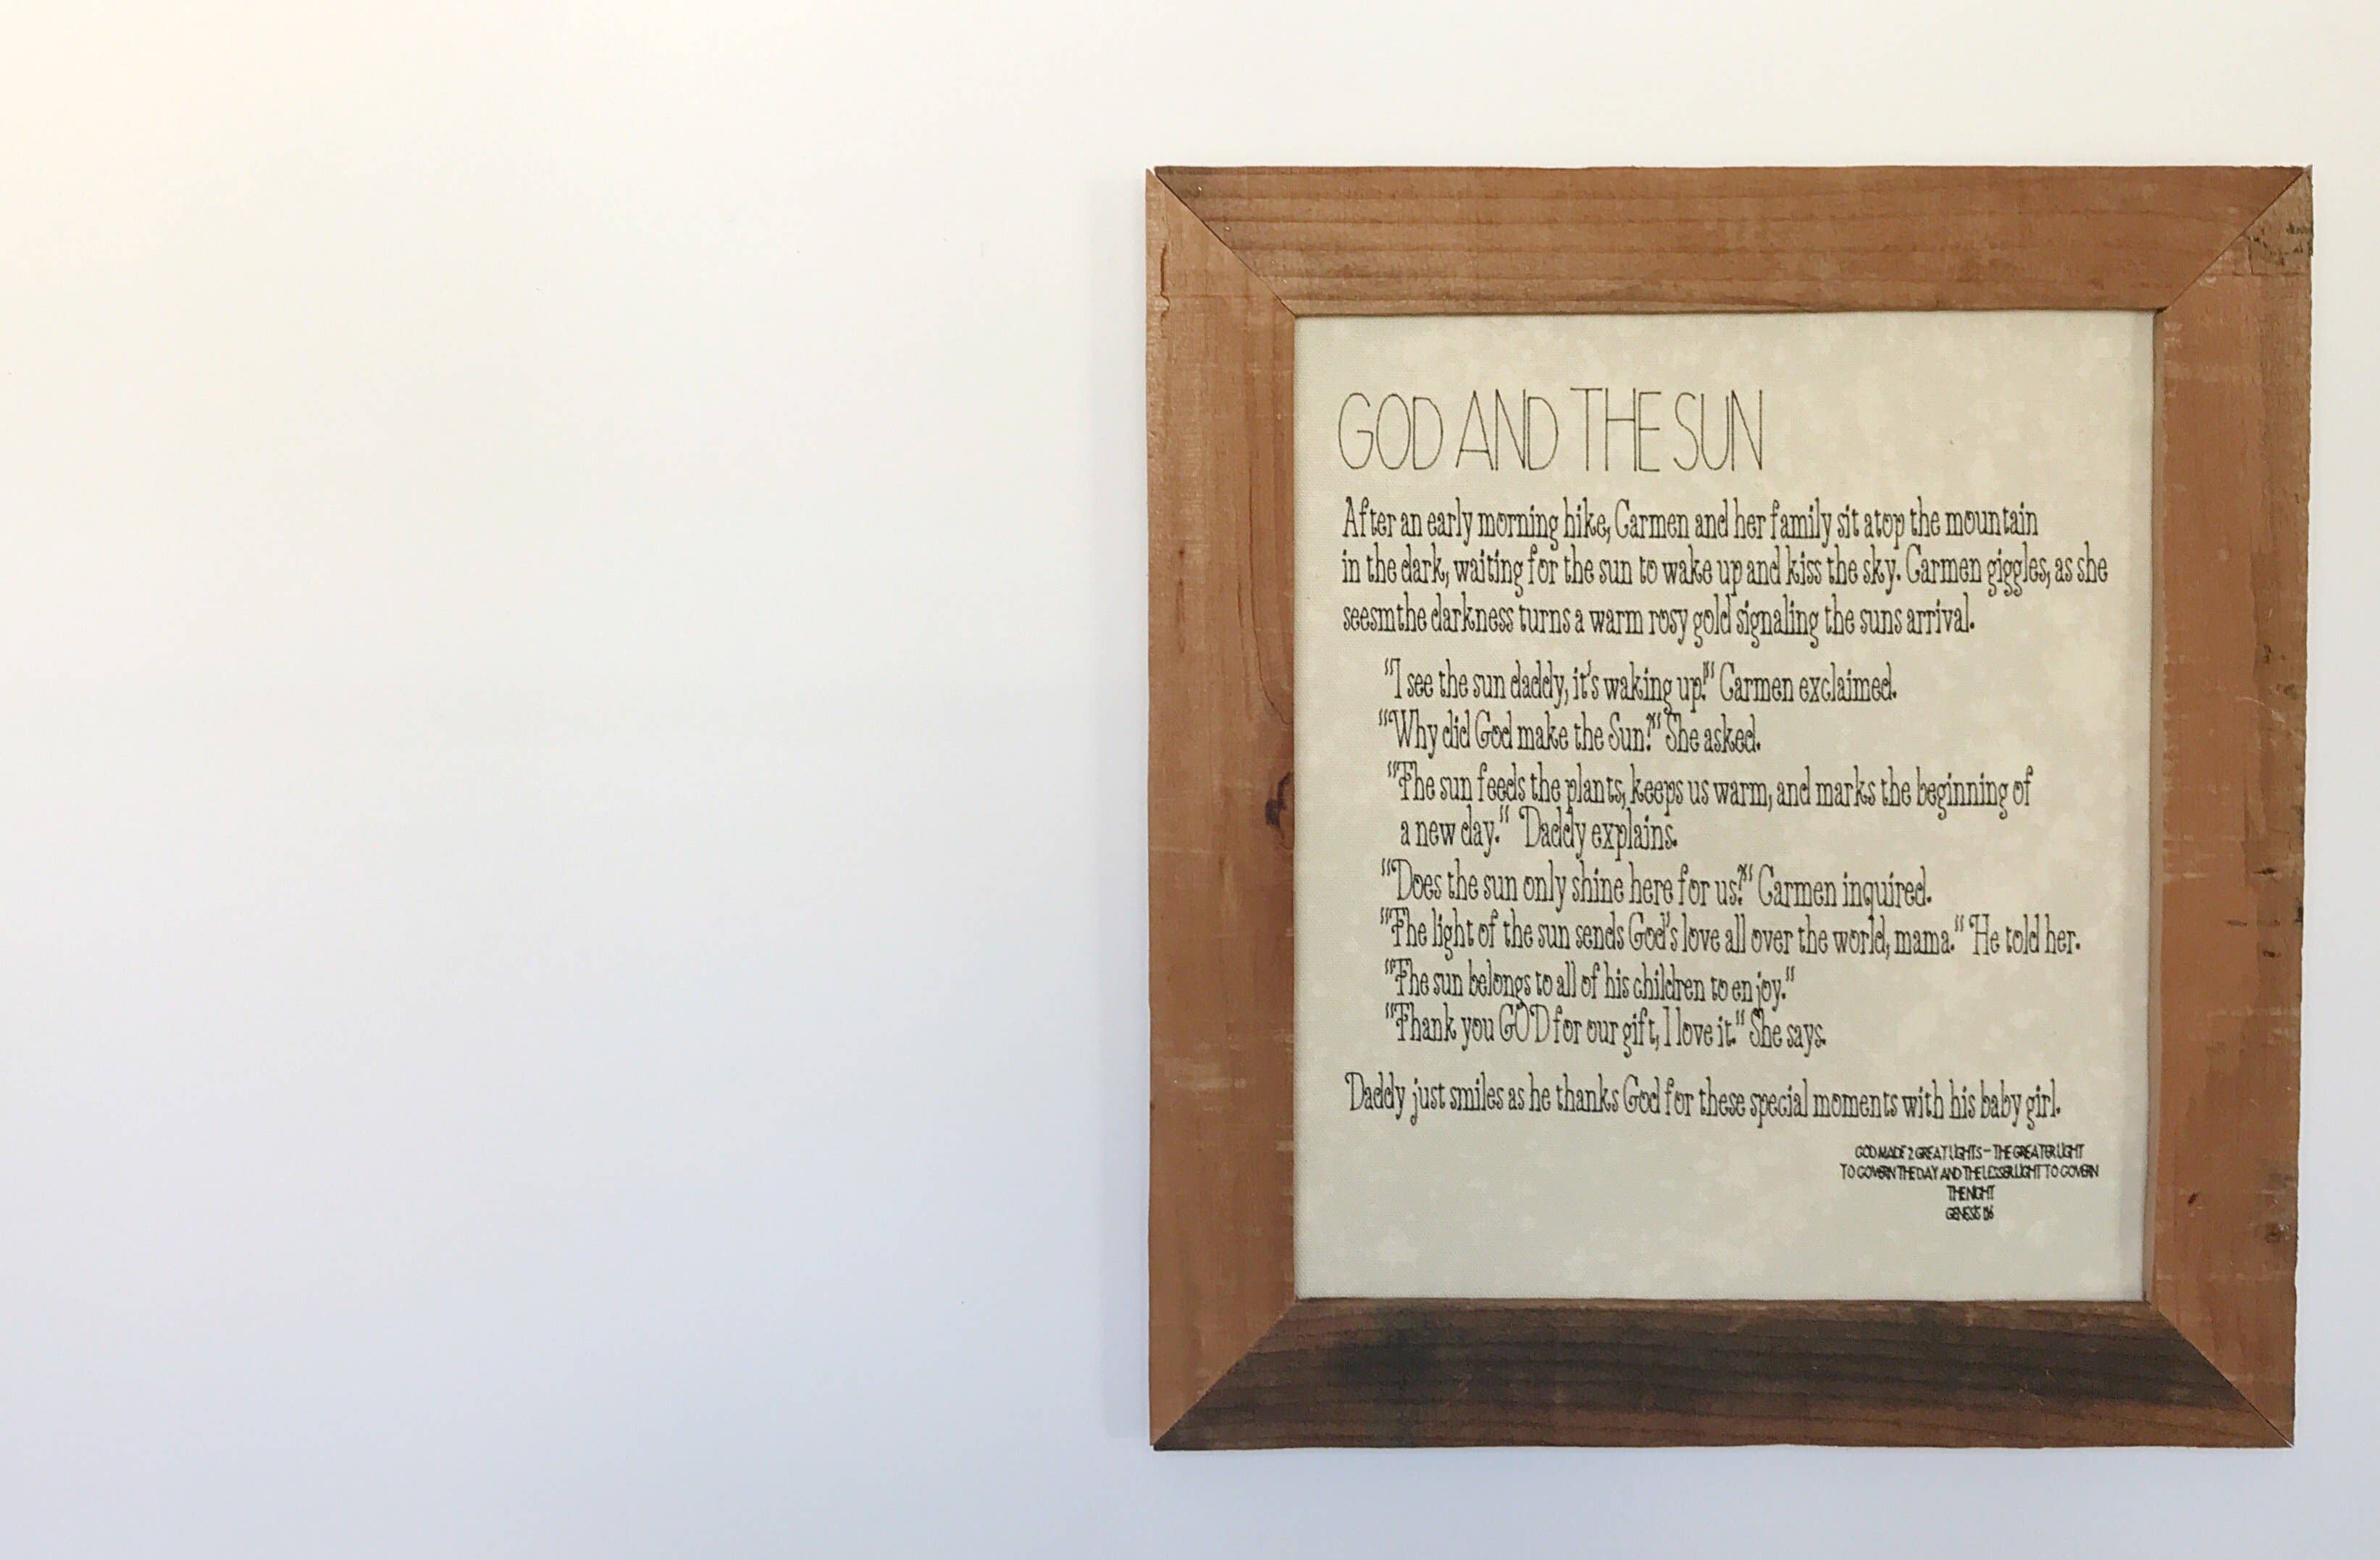 GOD AND THE SUN
After an early morning hike, Carmen and her family sit atop the mountain
in the dark, waiting for the sun to wake up and kiss the sky. Carmen giggles, as she
seesmthe darkness turns a warm rosy gold signaling the suns arrival.
"I see the sun daddy, it's waking up!" Carmen exclaimed.
"Why did God make the Sun?" She asked.
"The sun feeds the plants, keeps us warm, and marks the beginning of
a new day." Daddy explains.
"Does the sun only shine here for us?" Carmen inquired.
"The light of the sun sends God's love all over the world, mama." He told her.
"The sun belongs to all of his children to enjoy."
"Thank you GOD for our gift, I love it." She says.
Daddy just smiles as he thanks God for these special moments with his baby girl.
GOD MADE 2 GREAT LIGHTS - THE GREATER LIGHT
TO GOVERN THE DAY AND THE LESSER LIGHT TO GOVERN
THE NIGHT
GENESIS 1:16